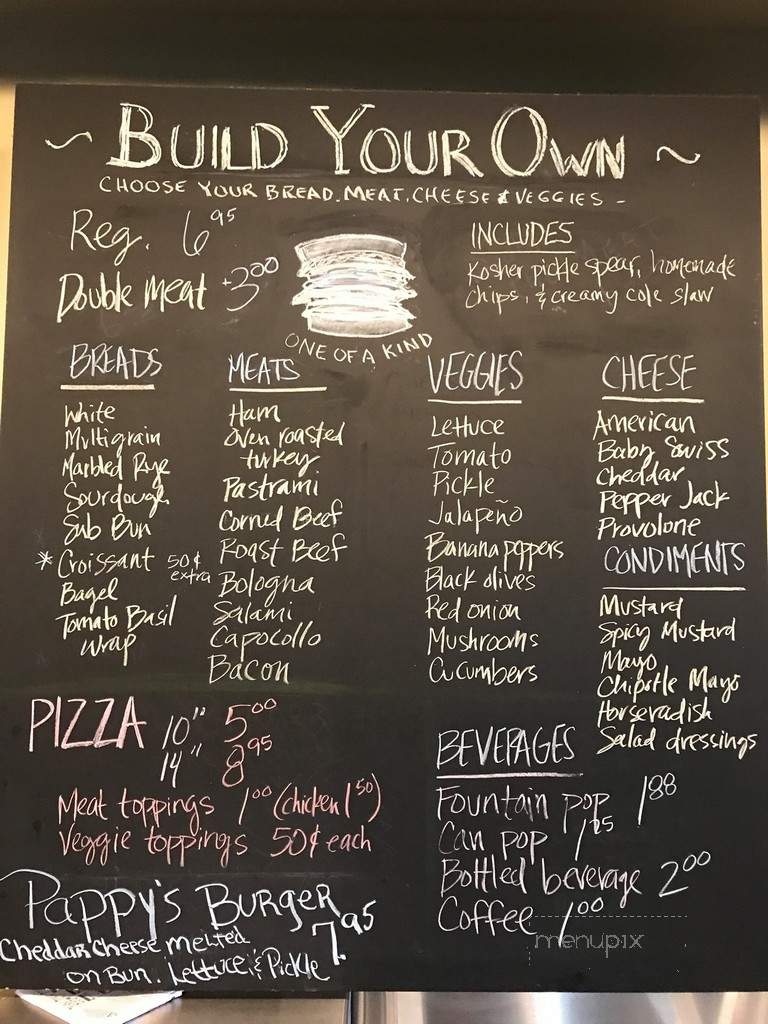 ~ BUILD YOUR OWN ~
CHOOSE YOUR BREAD. MEAT. CHEESE & VEGGIES -
Reg. 6 95
Double Meat +3 00
ONE OF A KIND
INCLUDES
Kosher pickle spear, homemade
chips, & creamy cole slaw
BREADS
White
Multigrain
Marbled Rye
Sourdough
Sub Bun
* Croissant 50¢ extra
Bagel
Tomato Basil
Wrap
MEATS
Ham
Oven roasted
turkey
Pastrami
Corned Beef
Roast Beef
Bologna
Salami
Capocollo
Bacon
VEGGIES
Lettuce
Tomato
Pickle
Jalapeño
Banana peppers
Black olives
Red onion
Mushrooms
Cucumbers
CHEESE
American
Baby Swiss
Cheddar
Pepper Jack
Provolone
CONDIMENTS
Mustard
Spicy Mustard
Mayo
Chipotle Mayo
Horseradish
Salad dressings
PIZZA 10" 5 00
14" 8 95
Meat toppings 1 00 (chicken 1 50)
Veggie toppings 50¢ each
BEVERAGES
Fountain pop 1 88
Can pop 1 25
Bottled beverage 2 00
Coffee 1 00
PAPPY'S BURGER 7.95
Cheddar Cheese Melted
on Bun. Lettuce & Pickle
menupix